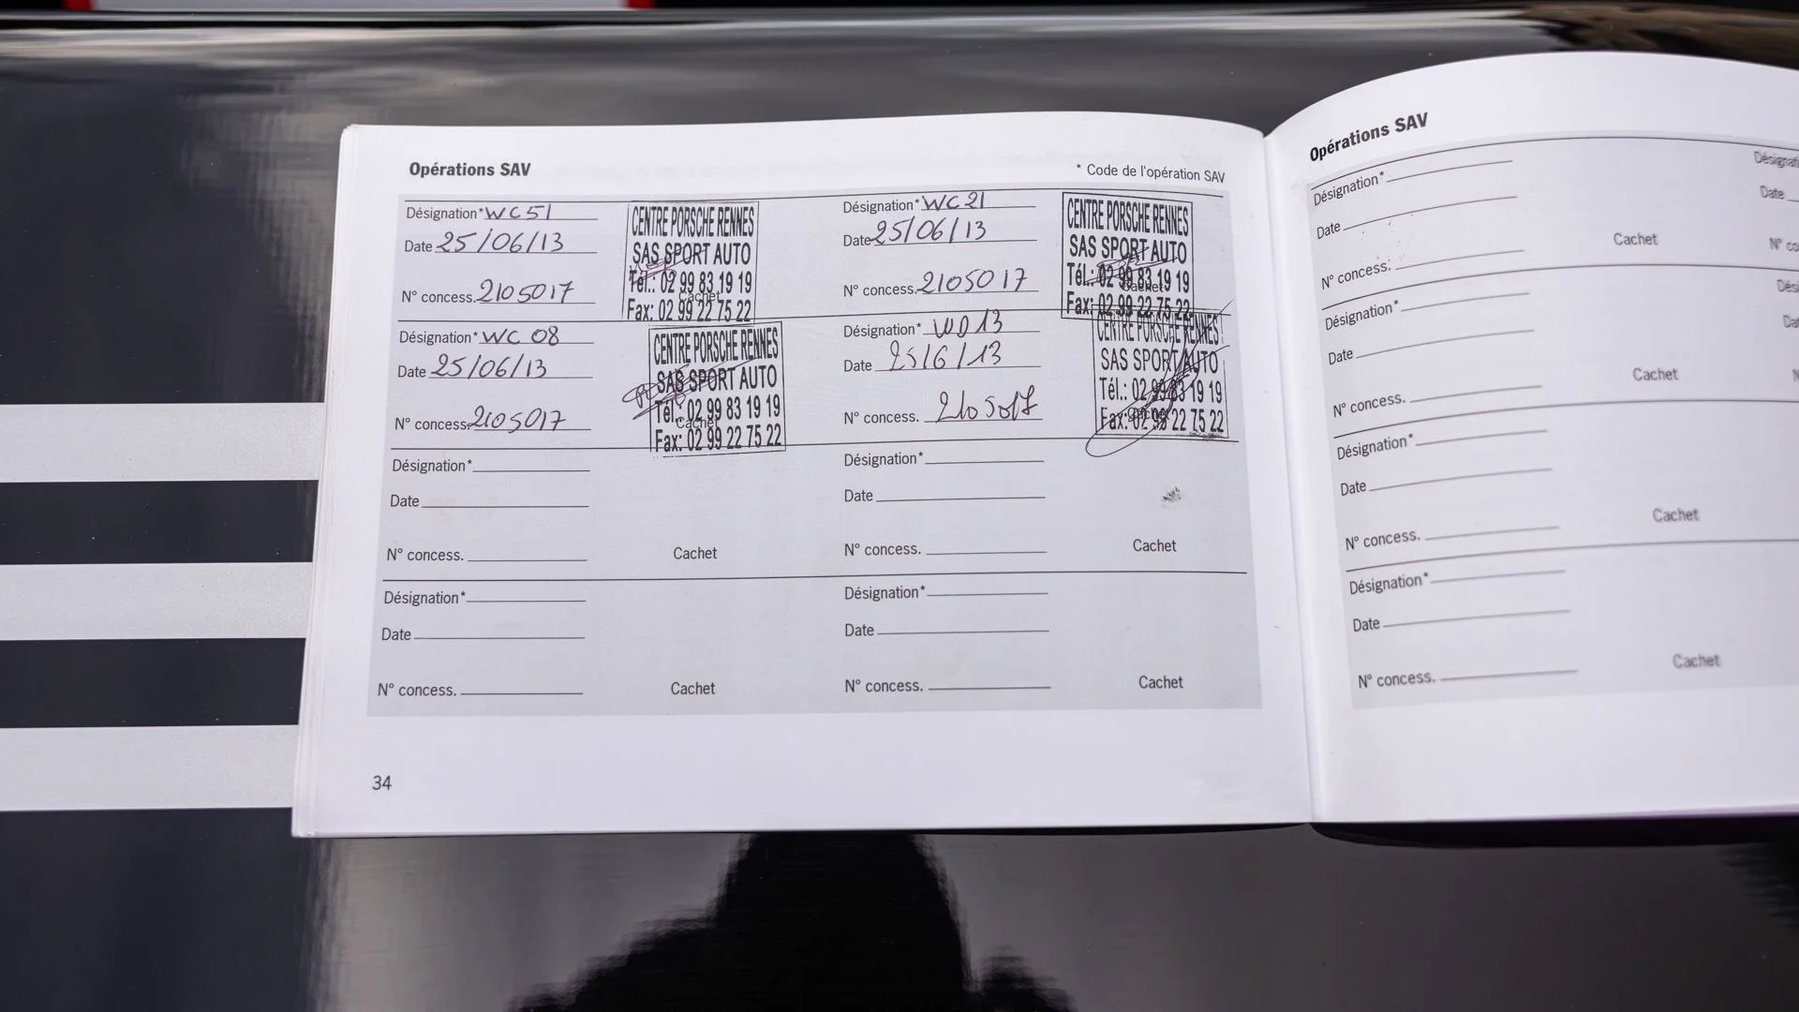 Opérations SAV
* Code de l'opération SAV
Désignation* WC51
Date 25/06/13
N° concess. 2105017
CENTRE PORSCHE RENNES
SAS SPORT AUTO
Tél.: 02 99 83 19 19
Cachet
Fax: 02 99 22 75 22
Désignation* WC21
Date 25/06/13
N° concess. 2105017
CENTRE PORSCHE RENNES
SAS SPORT AUTO
Tél.: 02 99 83 19 19
Cachet
Fax: 02 99 22 75 22
Désignation* WC 08
Date 25/06/13
N° concess. 2105017
CENTRE PORSCHE RENNES
SAS SPORT AUTO
Tél.: 02 99 83 19 19
Cachet
Fax: 02 99 22 75 22
Désignation* WD13
Date 25/6/13
N° concess. 2105017
CENTRE PORSCHE RENNES
SAS SPORT AUTO
Tél.: 02 99 83 19 19
Cachet
Fax: 02 99 22 75 22
Désignation*
Date
N° concess. Cachet
Désignation*
Date
N° concess. Cachet
Désignation*
Date
N° concess. Cachet
Désignation*
Date
N° concess. Cachet
34
Opérations SAV
Désignation*
Date
N° concess. Cachet
Désignation*
Date
N° concess. Cachet
Désignation*
Date
N° concess. Cachet
Désignation*
Date
N° concess. Cachet
Date
N°